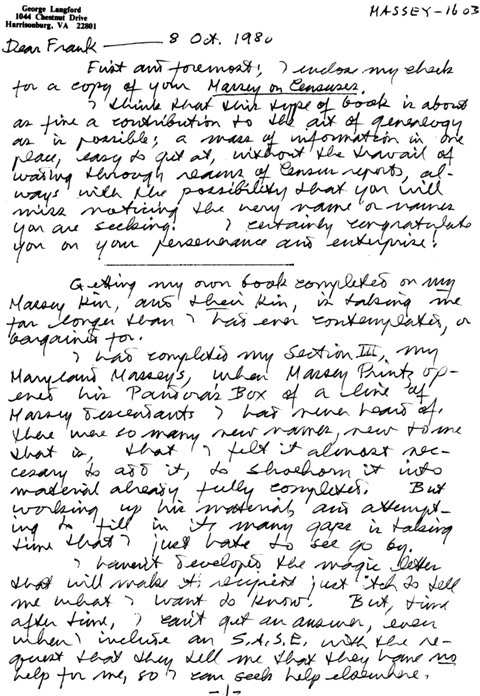 George Langford
1044 Chestnut Drive
Harrisonburg, VA 22801
MASSEY-1603
Dear Frank — 8 Oct. 1980
First and foremost, I enclose my check
for a copy of your Massey on Censuses.
I think that this type of book is about
as fine a contribution to the art of genealogy
as is possible; a mass of information in one
place, easy to get at, without the travail of
wading through reams of Census reports, al-
ways with the possibility that you will
miss noticing the very name or names
you are seeking. I certainly congratulate
you on your perseverance and enterprise!
Getting my own book completed on my
Massey Kin, and their Kin, is taking me
far longer than I had ever contemplated, or
bargained for.
I had completed my Section III, my
Maryland Masseys, when Massey Printz op-
ened his Pandora's Box of a line of
Massey descendants I had never heard of.
There were so many new names, new to me
that is, that I felt it almost nec-
cesary to add it, to shoehorn it into
material already fully completed. But
working up his material, and attempt-
ing to fill in its many gaps is taking
time that I just hate to see go by.
I haven't developed the magic letter
that will make its recipient just itch to tell
me what I want to know. But, time
after time, I can't get an answer, even
when I include an S.A.S.E. with the re-
quest that they tell me that they have no
help for me, so I can seek help elsewhere.
-1-